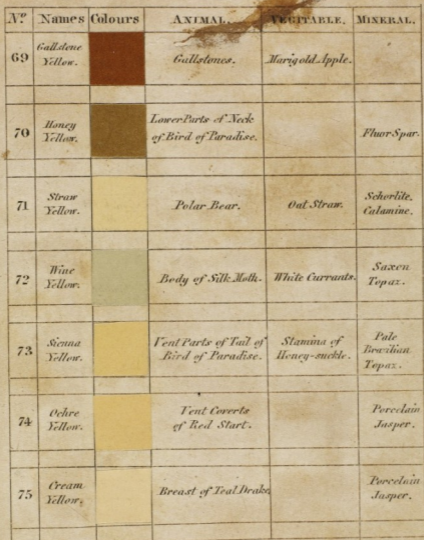 No. Names Colours ANIMAL. VEGITABLE. MINERAL.
69 Gallstone Yellow. Gallstones. Marigold Apple.
70 Honey Yellow. Lower Parts of Neck of Bird of Paradise. Fluor Spar.
71 Straw Yellow. Polar Bear. Oat Straw. Schorlite, Calamine.
72 Wine Yellow. Body of Silk Moth. White Currants. Saxon Topaz.
73 Sienna Yellow. Vent Parts of Tail of Bird of Paradise. Stamina of Honey-suckle. Pale Brazilian Topaz.
74 Ochre Yellow. Vent Coverts of Red Start. Porcelain Jasper.
75 Cream Yellow. Breast of Teal Drake. Porcelain Jasper.